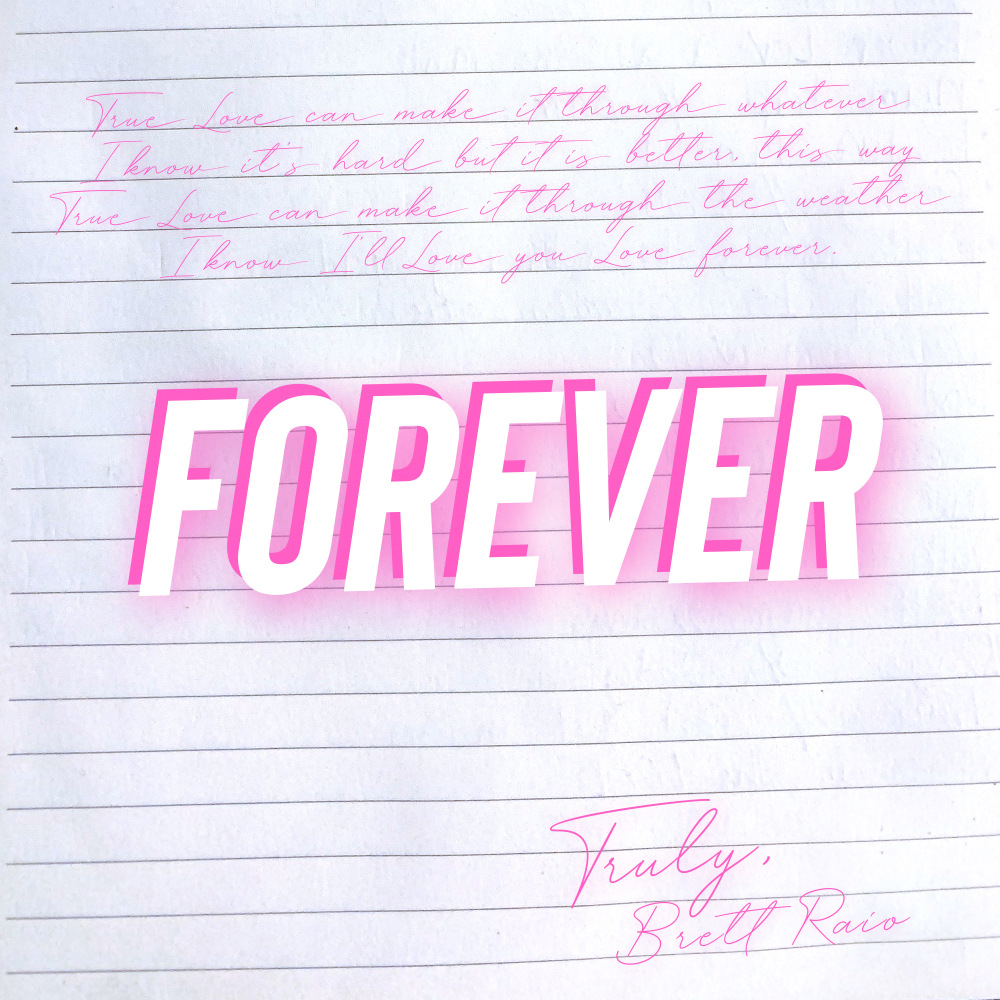 True Love can make it through whatever
I know it's hard but it is better, this way
True Love can make it through the weather
I know I'll Love you Love forever.
FOREVER
Truly,
Brett Raio